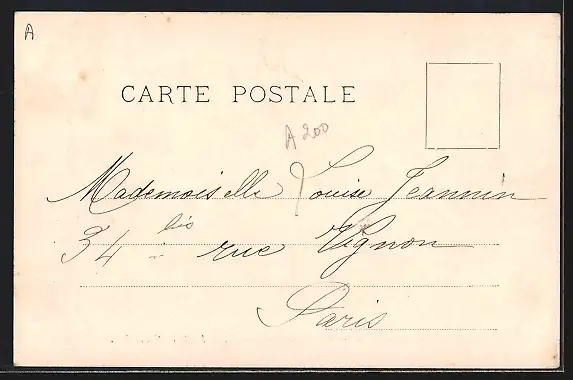 A
CARTE POSTALE
A 200
Mademoiselle Louise Jeannin
34 bis rue Vignon
Paris